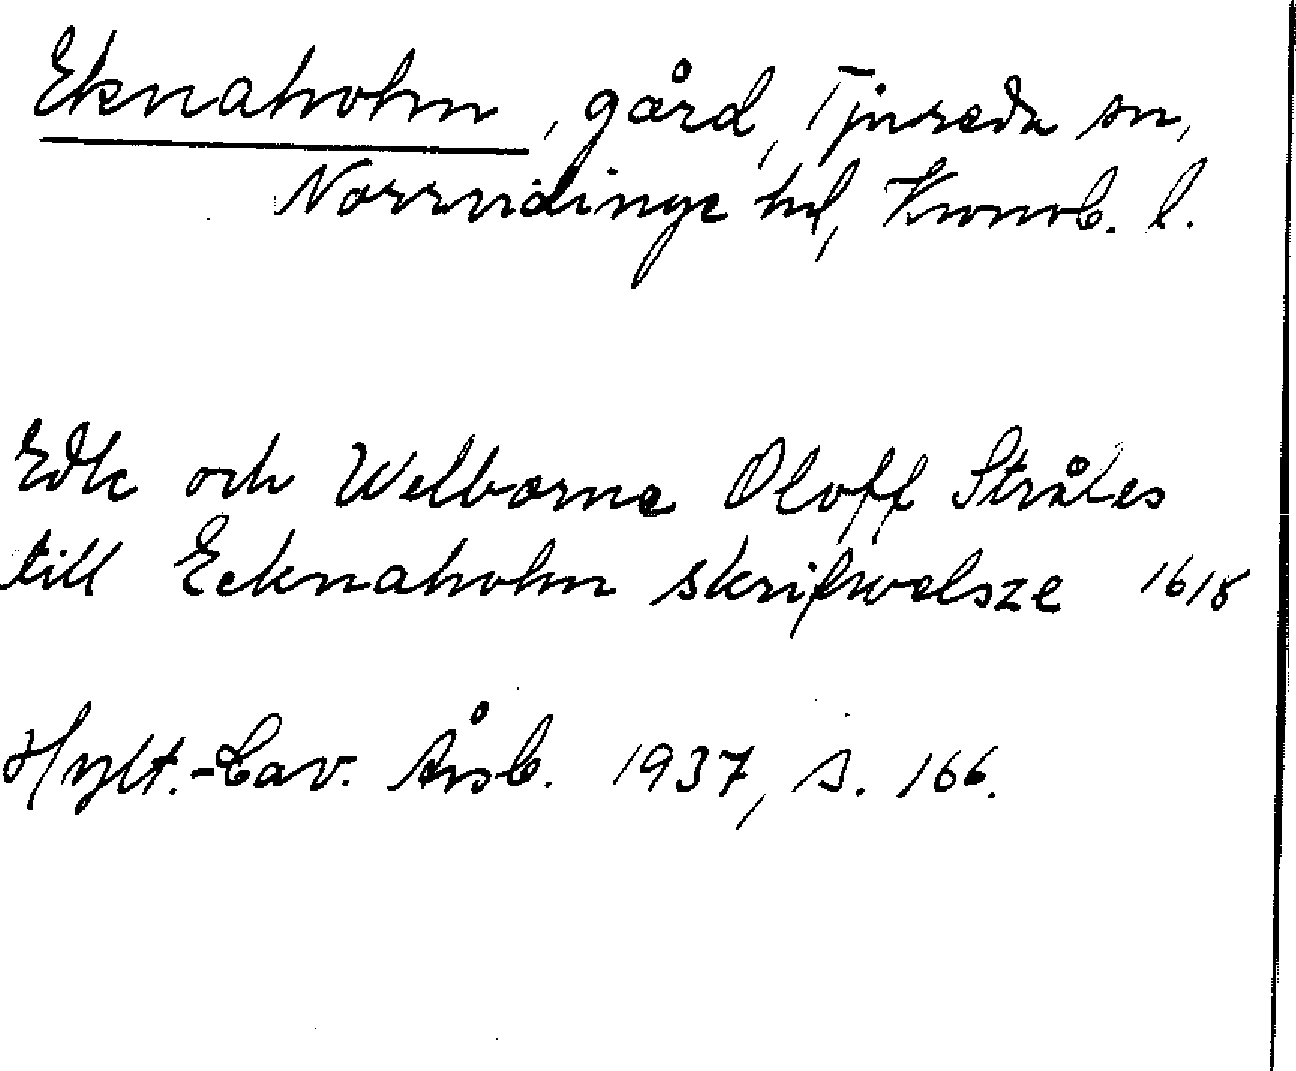 Eknaholm, gård, Tjureda sn,
Norrvidinge hd, Kronob. l.
Edle och Welborne Oloff Stråles
till Ecknaholm skrifwelsze 1618
Hylt.-Cav. Årsb. 1937, s. 166.